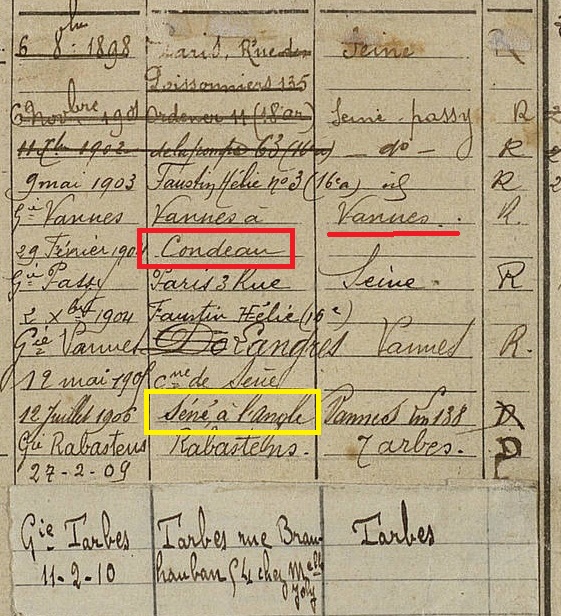 6 8bre 1898 Paris, Rue des Seine R
Poissonniers 135
6 Novbre 1901 Ordener 11 (18e ar) Seine - passy R
11 Xbre 1902 de la pompe 63 (16e a) - do - R
9 mai 1903 Faustin Hélie no 3 (16e a) id R
Gie Vannes Vannes à Vannes. R.
29 Février 1904 Condeau
Gie Passy Paris 3 Rue Seine. R
2 Xbre 1904 Faustin Hélie (16e)
Gie Vannes Langres Vannes R.
12 mai cne de Séné
12 Juillet 1906 Séné à l'angle Vannes 138
Gie Rabastens Rabastens. Tarbes. D
27-2-09
Gie Tarbes Tarbes rue Brau- Tarbes
11-2-10 hauban 94 chez Melle
Joly